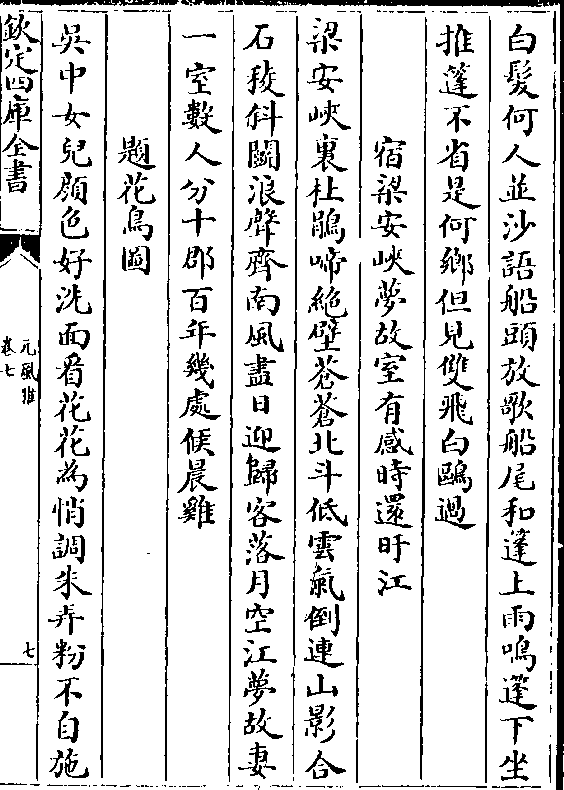 白髮何人並沙語船頭放歌船尾和蓬上雨鳴蓬下坐
推蓬不省是何鄉但見雙飛白鷗過
宿梁安峽夢故室有感時還盱江
梁安峽裏杜鵑啼絶壁蒼蒼北斗低雲氣倒連山影合
石稜斜鬭浪聲齊南風盡日迎歸客落月空江夢故妻
一室數人分十郡百年幾處候晨雞
題花鳥圖
吳中女兒顔色好洗面看花花為悄調朱弄粉不自施
欽定四庫全書
元風雅
卷七
七